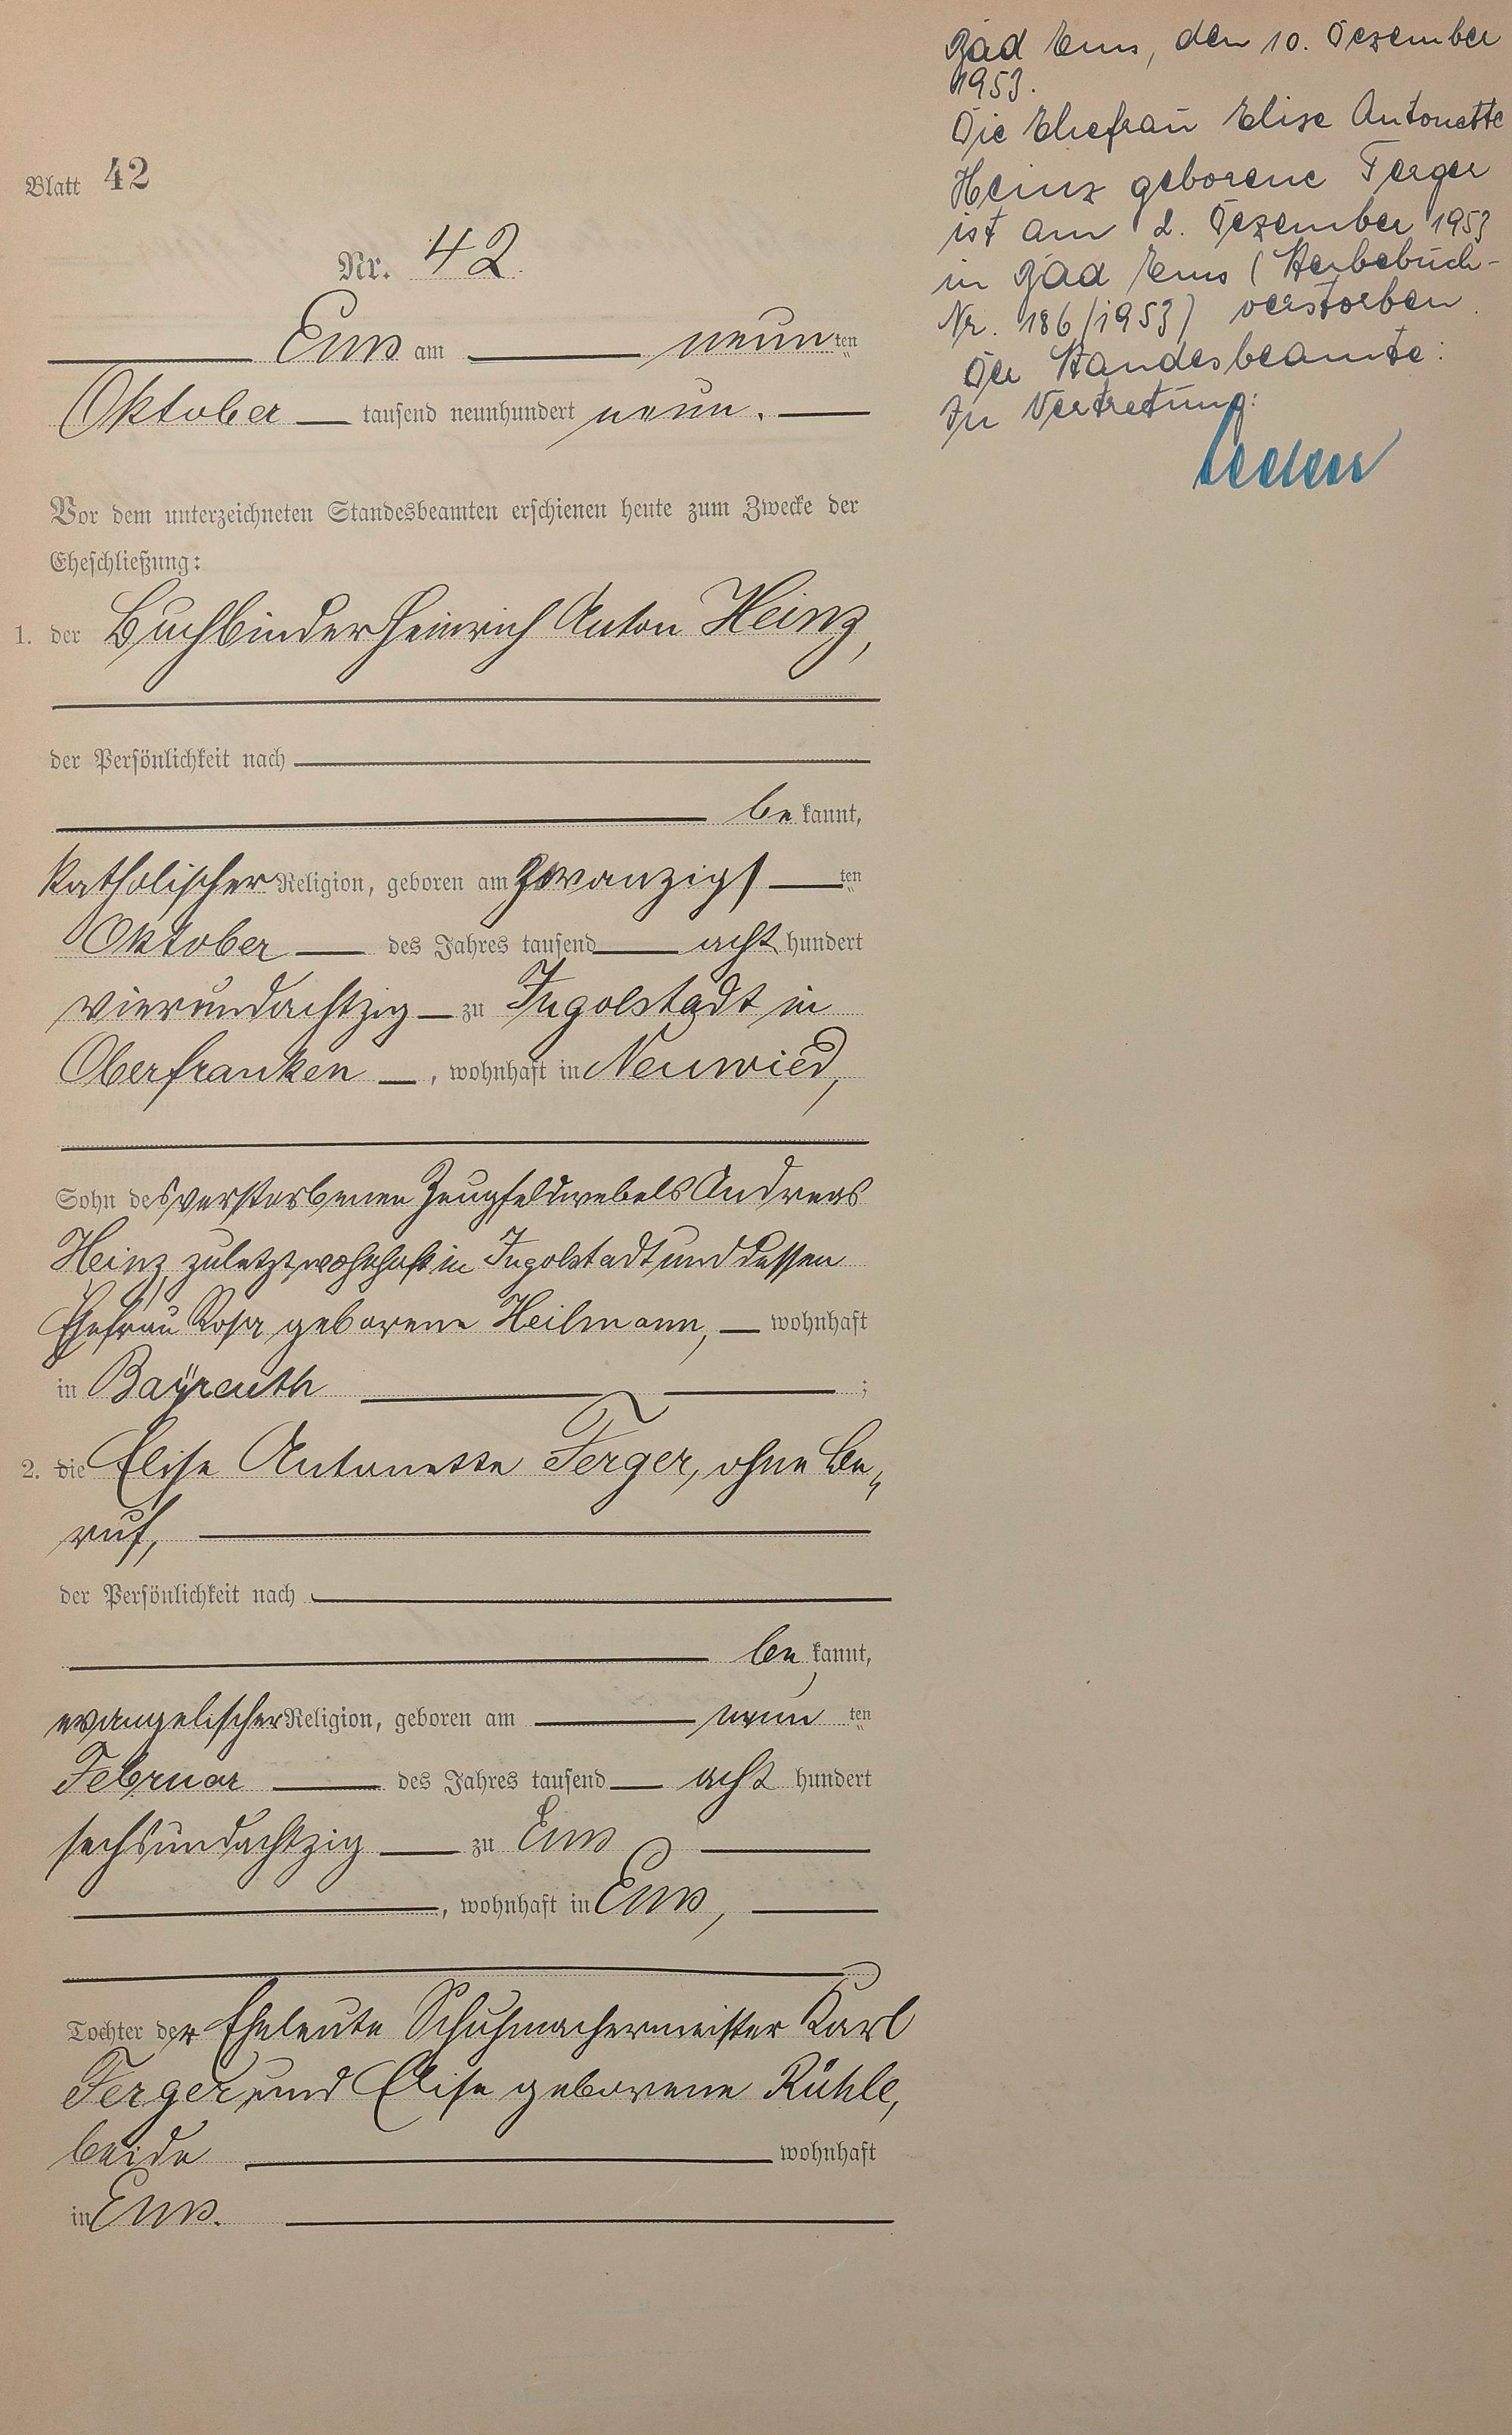 Blatt 42
Nr. 42
Ems am neunten
Oktober tausend neunhundert neun.
Vor dem unterzeichneten Standesbeamten erschienen heute zum Zwecke der
Eheschließung:
1. der Buchbinder Heinrich Anton Heinz,
der Persönlichkeit nach
bekannt,
katholischer Religion, geboren am zwanzigsten
Oktober des Jahres tausend acht hundert
vierundachtzig zu Ingolstadt in
Oberfranken, wohnhaft in Neuwied,
Sohn des verstorbenen Zeugfeldwebels Andreas
Heinz, zuletzt wohnhaft in Ingolstadt und dessen
Ehefrau Rosa geborene Heilmann, wohnhaft
in Bayreuth;
2. die Elise Antonette Ferger, ohne Be„
ruf,
der Persönlichkeit nach
bekannt,
evangelischer Religion, geboren am neunten
Februar des Jahres tausend acht hundert
sechsundachtzig zu Ems
, wohnhaft in Ems,
Tochter der Eheleute Schuhmachermeister Karl
Ferger und Elise geborene Rühle,
beide wohnhaft
in Ems.
Bad Ems, den 10. Dezember
1953.
Die Ehefrau Elise Antonette
Heinz geborene Ferger
ist am 2. Dezember 1953
in Bad Ems (Sterbebuch-
Nr. 186/1953) verstorben.
Der Standesbeamte:
In Vertretung: